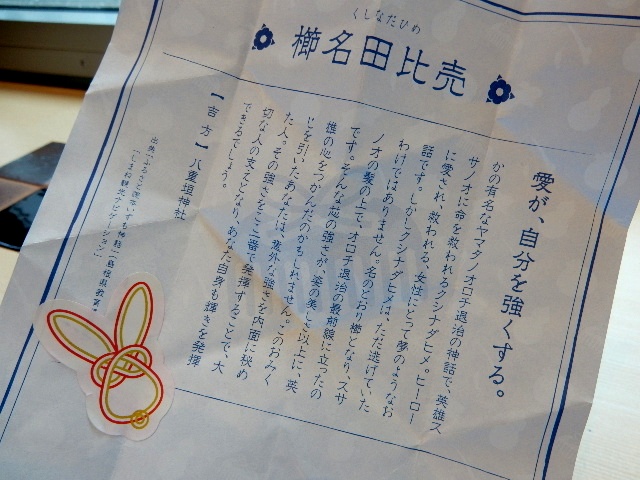 くしなだひめ
櫛名田比売
愛が、自分を強くする。
かの有名なヤマタノオロチ退治の神話で、英雄ス
サノオに命を救われるクシナダヒメ。ヒーロー
に愛され、救われる、女性にとって夢のようなお
話です。しかしクシナダヒメは、ただ逃げていた
わけではありません。名のとおり櫛となり、スサ
ノオの髪の上で、オロチ退治の最前線に立ったの
です。そんな芯の強さが、姿の美しさ以上に、英
雄の心をつかんだのかもしれません。このおみく
じを引いたあなたは、意外な強さを内面に秘め
た人。その強さをここ一番で発揮することで、大
切な人の支えとなり、あなた自身も輝きを発揮
できるでしょう。
【吉方】八重垣神社
出典「ふるさと読本いずも神話」(島根県教育)
「しまね観光ナビゲーション」